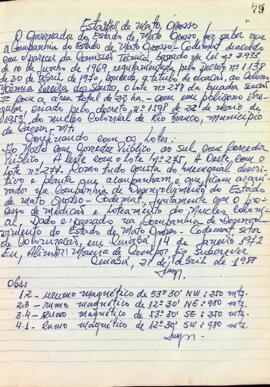 79
Estado de Mato Grosso
O Governador do Estado de Mato Grosso, faz saber que
a Companhia do Estado de Mato Grosso - Codemat, de acordo
com o parecer da Comissão Técnica, baseada na lei nº
10 de Junho de 1969, regulamentada, pelo decreto nº 1137
de 30 de abril de 1970, concede, a título de doação, ao colono
Pereira dos Santos, o lote nº 277 da quadra
para a área total de 33 ha - com um polígono
pelo, decreto nº 1.598 de 22 de maio de
1953, do nucleo Colonial de Rio Branco, município
de Caceres - MT
Confinando com os Lotes:
Ao Norte com Corredor Público, ao Sul com Corredor
Público, A leste com o Lote nº 275. A Oeste, com o
Lote nº 279. Como tudo consta do memorial
descritivo e planta que acompanharam e que ficam
na Companhia de Desenvolvimento do Estado
de Mato Grosso - Codemat, juntamente com o processo
de medição e loteamento do Nucleo Colonial.
Dado e passado na Companhia de Desenvolvimento
do Estado de Mato Grosso - Codemat, setor
de Colonização, em Cuiabá, 14 de Janeiro 1972
Eu, Moreira de
Cuiabá, 21 de Abril de 1981
Obs:
1.2 - rumo magnético de 53º 30' NW: 350 mts.
2.3 - rumo magnético de 12º 30' NE: 980 mts.
3.4 - Rumo magnético de 53º 30' SE: 350 mts.
4.1 - Rumo magnético de 12º 30' SW: 980 mts.